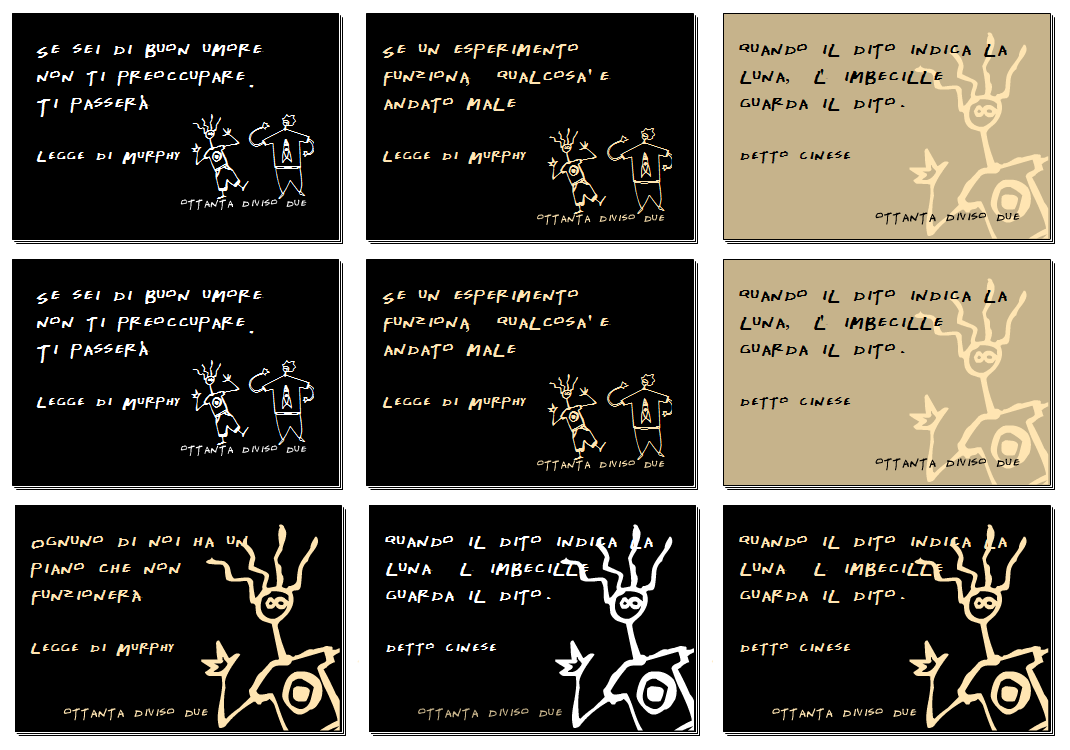 SE SEI DI BUON UMORE
NON TI PREOCCUPARE.
TI PASSERÀ
LEGGE DI MURPHY
OTTANTA DIVISO DUE
SE UN ESPERIMENTO
FUNZIONA, QUALCOSA'E
ANDATO MALE
LEGGE DI MURPHY
OTTANTA DIVISO DUE
QUANDO IL DITO INDICA LA
LUNA, L' IMBECILLE
GUARDA IL DITO.
DETTO CINESE
OTTANTA DIVISO DUE
SE SEI DI BUON UMORE
NON TI PREOCCUPARE.
TI PASSERÀ
LEGGE DI MURPHY
OTTANTA DIVISO DUE
SE UN ESPERIMENTO
FUNZIONA, QUALCOSA'E
ANDATO MALE
LEGGE DI MURPHY
OTTANTA DIVISO DUE
QUANDO IL DITO INDICA LA
LUNA, L' IMBECILLE
GUARDA IL DITO.
DETTO CINESE
OTTANTA DIVISO DUE
OGNUNO DI NOI HA UN
PIANO CHE NON
FUNZIONERÀ
LEGGE DI MURPHY
OTTANTA DIVISO DUE
QUANDO IL DITO INDICA LA
LUNA L IMBECILLE
GUARDA IL DITO.
DETTO CINESE
OTTANTA DIVISO DUE
QUANDO IL DITO INDICA LA
LUNA L IMBECILLE
GUARDA IL DITO.
DETTO CINESE
OTTANTA DIVISO DUE